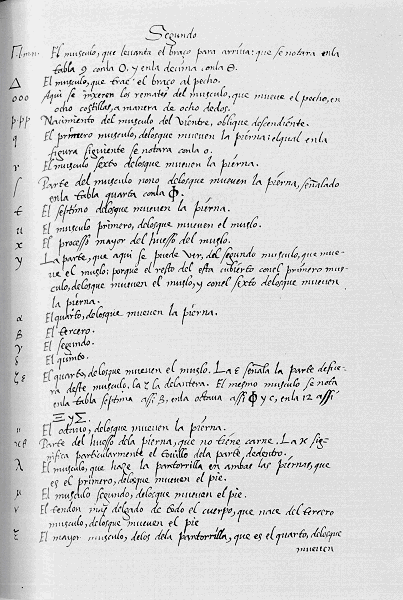 Segundo
Γ.lmn. El musculo, que levanta el braço para arriva: que se notara enla
tabla 9 conla O. y enla decima. conla Θ.
Δ El musculo, que trae el braço al pecho.
ooo Aqui se inxeren los remates del musculo, que mueve el pecho, en
ocho costillas, a manera de ocho dedos.
ppp Nacimiento del musculo del vientre, oblique descendiente.
q El primero musculo, delosque mueven la pierna: elqual enla
figura siguiente se notara conla o.
r El musculo sexto delosque mueven la pierna.
ſ Parte del musculo nono delosque mueven la pierna, señalado
enla tabla quarta conla Φ.
t El septimo delosque mueven la pierna.
u El musculo primero, delosque mueven el muslo.
x El processo mayor del huesso del muslo.
y La parte, que aqui se puede ver, del segundo musculo, que mue-
ve el muslo: porque el resto del esta cubierto conel primero mus-
culo, delosque mueven el muslo, y conel sexto delosque mueven
la pierna.
α El quarto, delosque mueven la pierna.
β El tercero.
γ El segundo.
δ El quinto.
ζε El quarto, delosque mueven el muslo. La ε señala la parte defue-
ra deste musculo, la ζ la delantera. El mesmo musculo se nota
enla tabla septima assi β, enla octava assi Φ y c, enla 12 assi
Ξ y Σ.
El octavo, delosque mueven la pierna.
Parte del huesso dela pierna, que no tiene carne. La x sig-
nifica particularmente el tovillo dela parte, dedentro.
λ El musculo, que haze la pantorrilla en ambas las piernas, que
es el primero, delosque mueven el pie.
μ El musculo segundo, delosque mueven el pie.
ν El tendon mas delgado de todo el cuerpo, que nace del tercero
musculo, delosque mueven el pie
ξ El mayor musculo, delos dela pantorrilla, que es el quarto, delosque
mueven